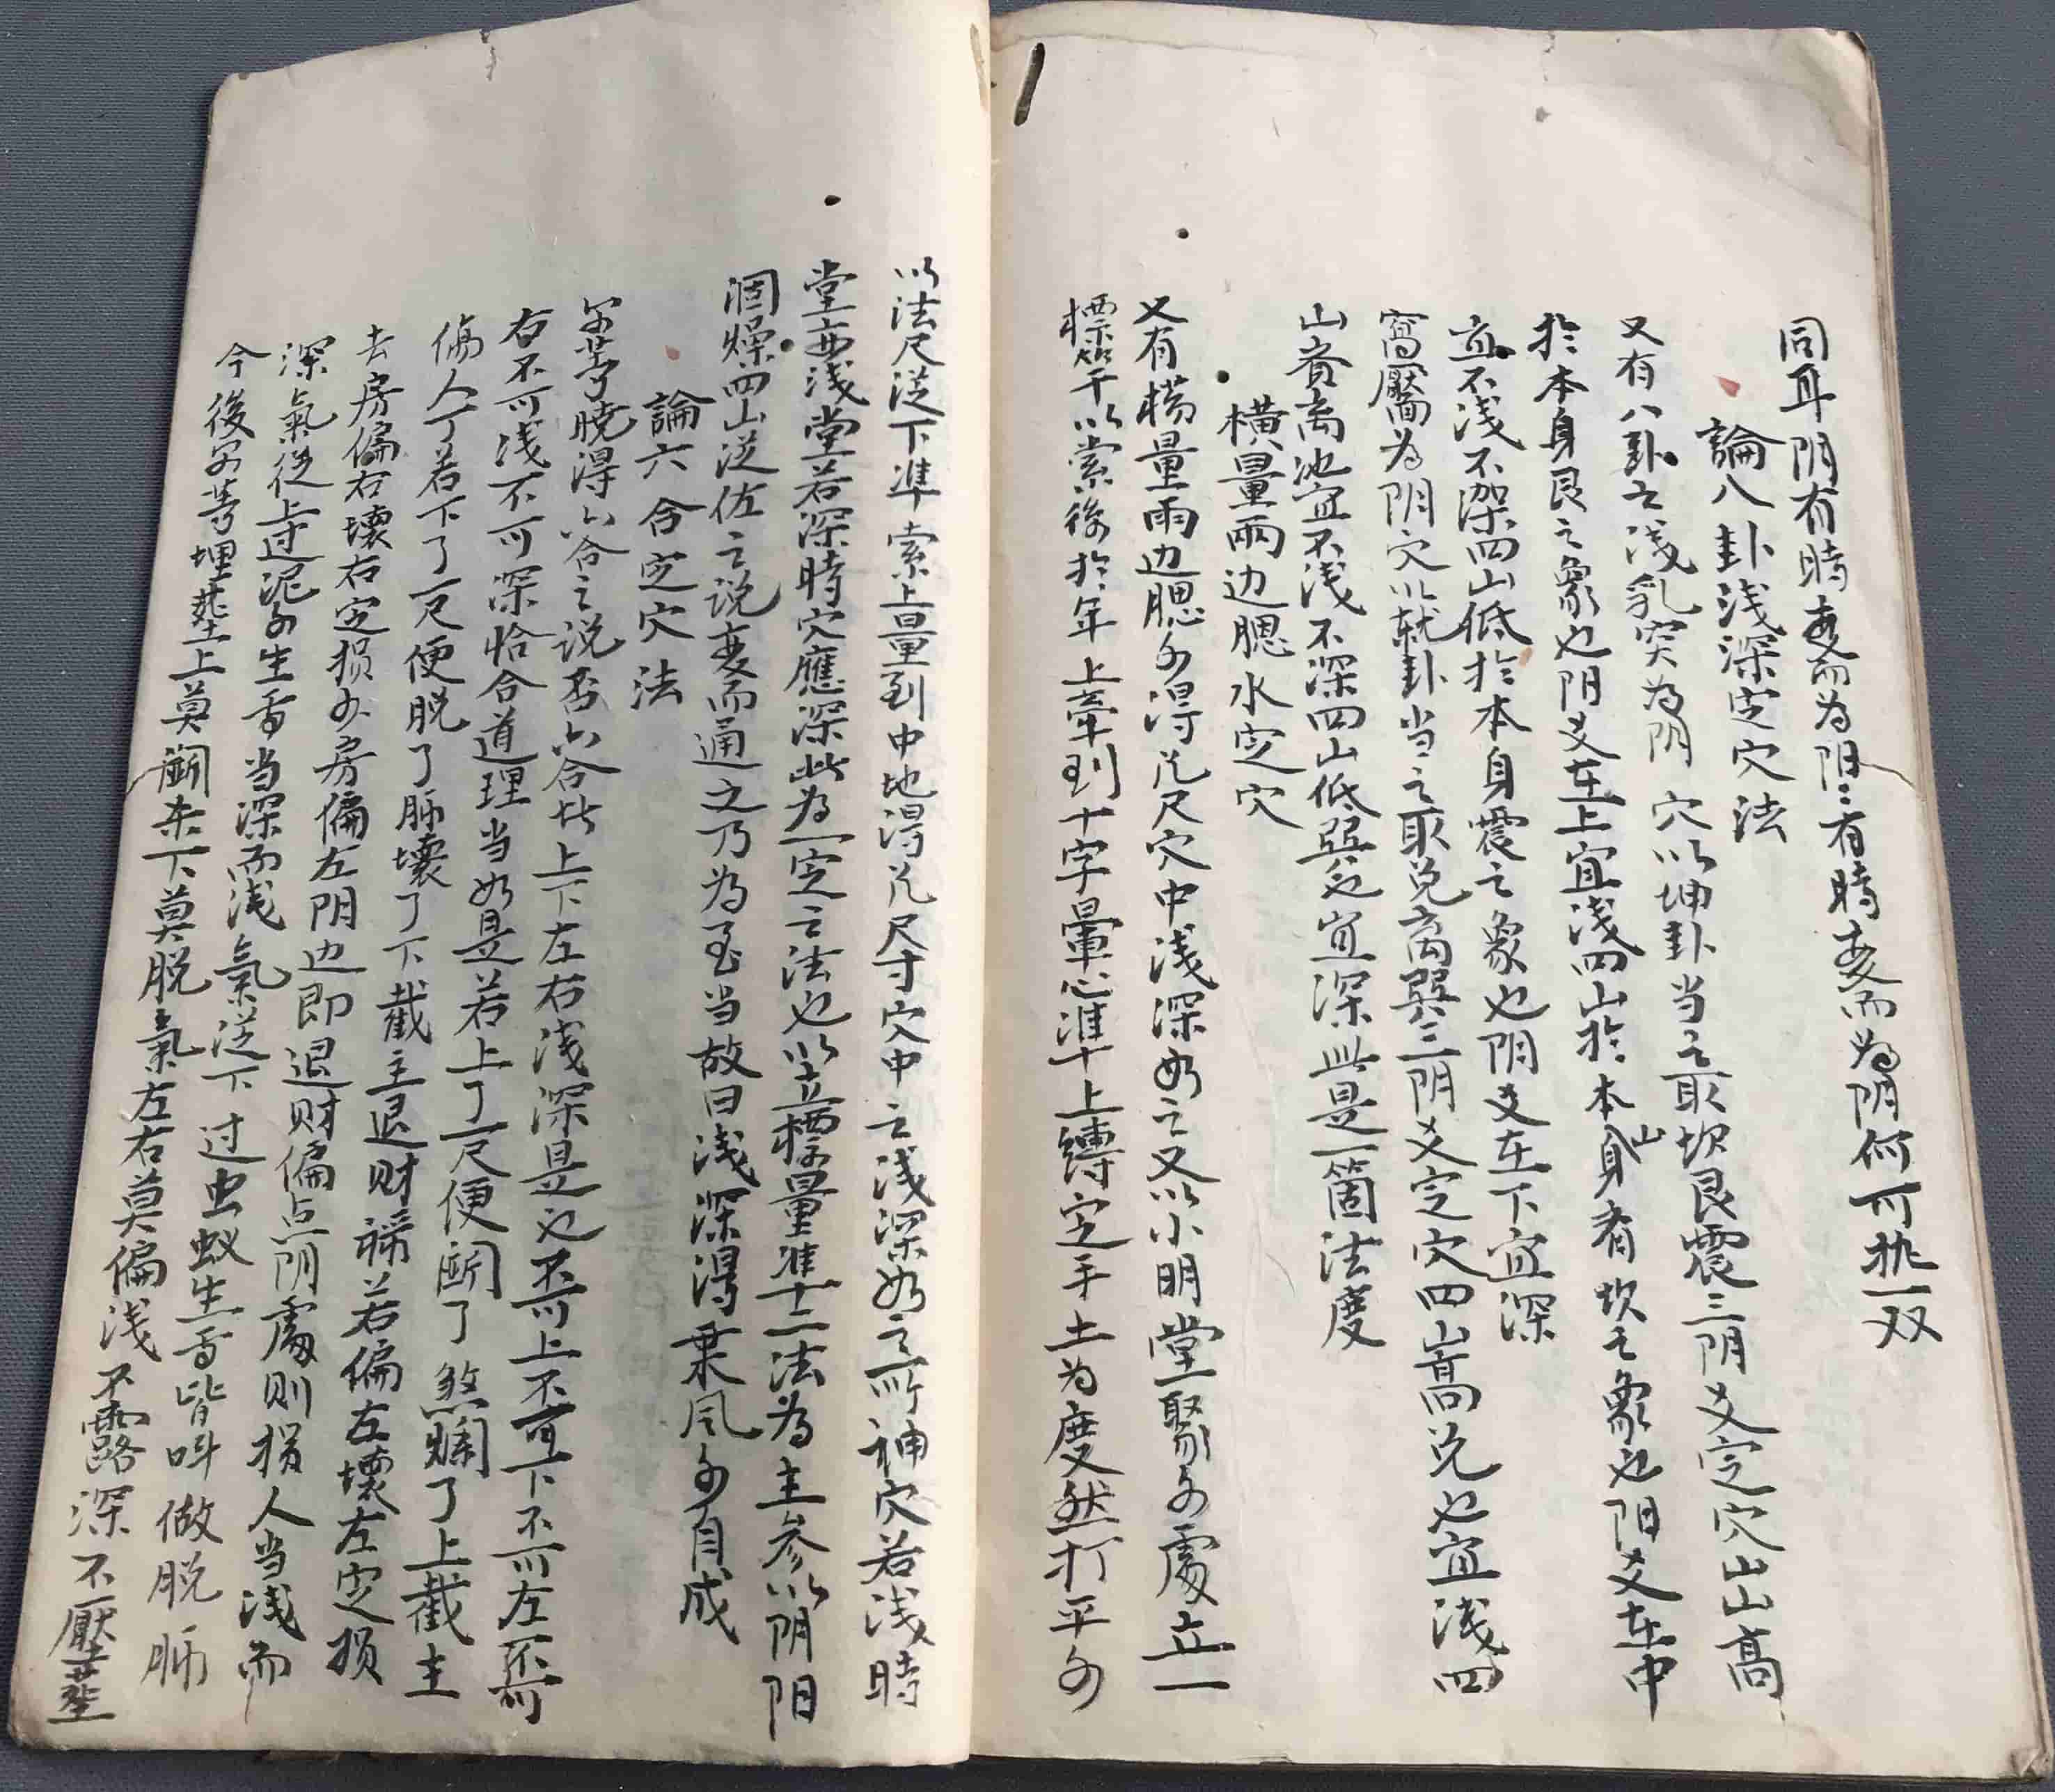 同耳阴有時变而为阳阳有時变而为阴何可执一双
論八卦浅深定穴法
又有八卦之浅乳突为阴穴以坤卦当之取坎艮震三阴爻定穴山高
於本身艮之象也阳爻在上宜浅四山於本身有坎之象也阳爻在中
宜不浅不深四山低於本身震之象也阴爻在下宜深
窩靨为阴穴以乾卦当之取兑离巽三阴爻定穴四山高兑也宜浅四
山齐离也宜不浅不深四山低巽也宜深此是一箇法度
横量兩边腮水定穴
又有横量两边腮水得几尺穴中浅深如之又以小明堂聚水處立一
標竿以索後於年上牽到十字暈心準上縛定手土为度然打平水
以法尺從下準索上量到中地得几尺寸穴中之浅深如之所神穴若浅時
堂要浅堂若深時穴應深此为一定之法也以立標量準十二法为主参以阴阳
涸燥四山從佐之说変而通之乃为至当故曰浅深得乗风水自成
論六合定穴法
安葬曉得六合之说否六合者上下左右浅深是也不可上不可下不可左不可
右不可浅不可深恰合道理当如是若上了一尺便鬭了煞爛了上截主
傷人丁若下了一尺便脱了脈壞了下截主退财禍若偏左壞左定损
去房偏右壞右定损房偏左阴边即退财偏点阴處则损人当浅而
深氣從上过泥水生焉当深而浅氣從下过虫蚁生焉皆叫做脱脈
今後安葬埋塟上莫鬭杀下莫脱氣左右莫偏浅不露深不壓塟